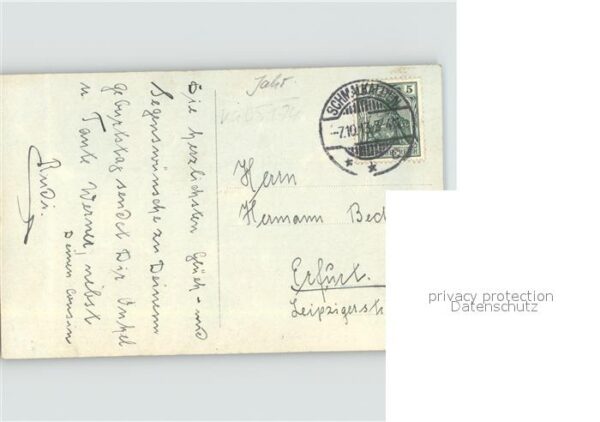 Die herzlichsten Glück- und
Segenswünsche zu Deinem
Geburtstag sendet Dir Onkel
u Tante Werner, nebst
Deinen Cousin
Rudi.
Jahr.
SCHMALKALDEN
-7.10.13
5
Herrn
Hermann Bech
Erfurt.
Leipzigerst
privacy protection
Datenschutz